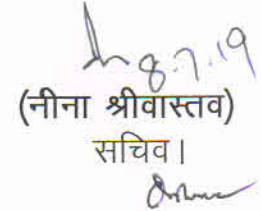 8.7.19
(नीना श्रीवास्तव)
सचिव।